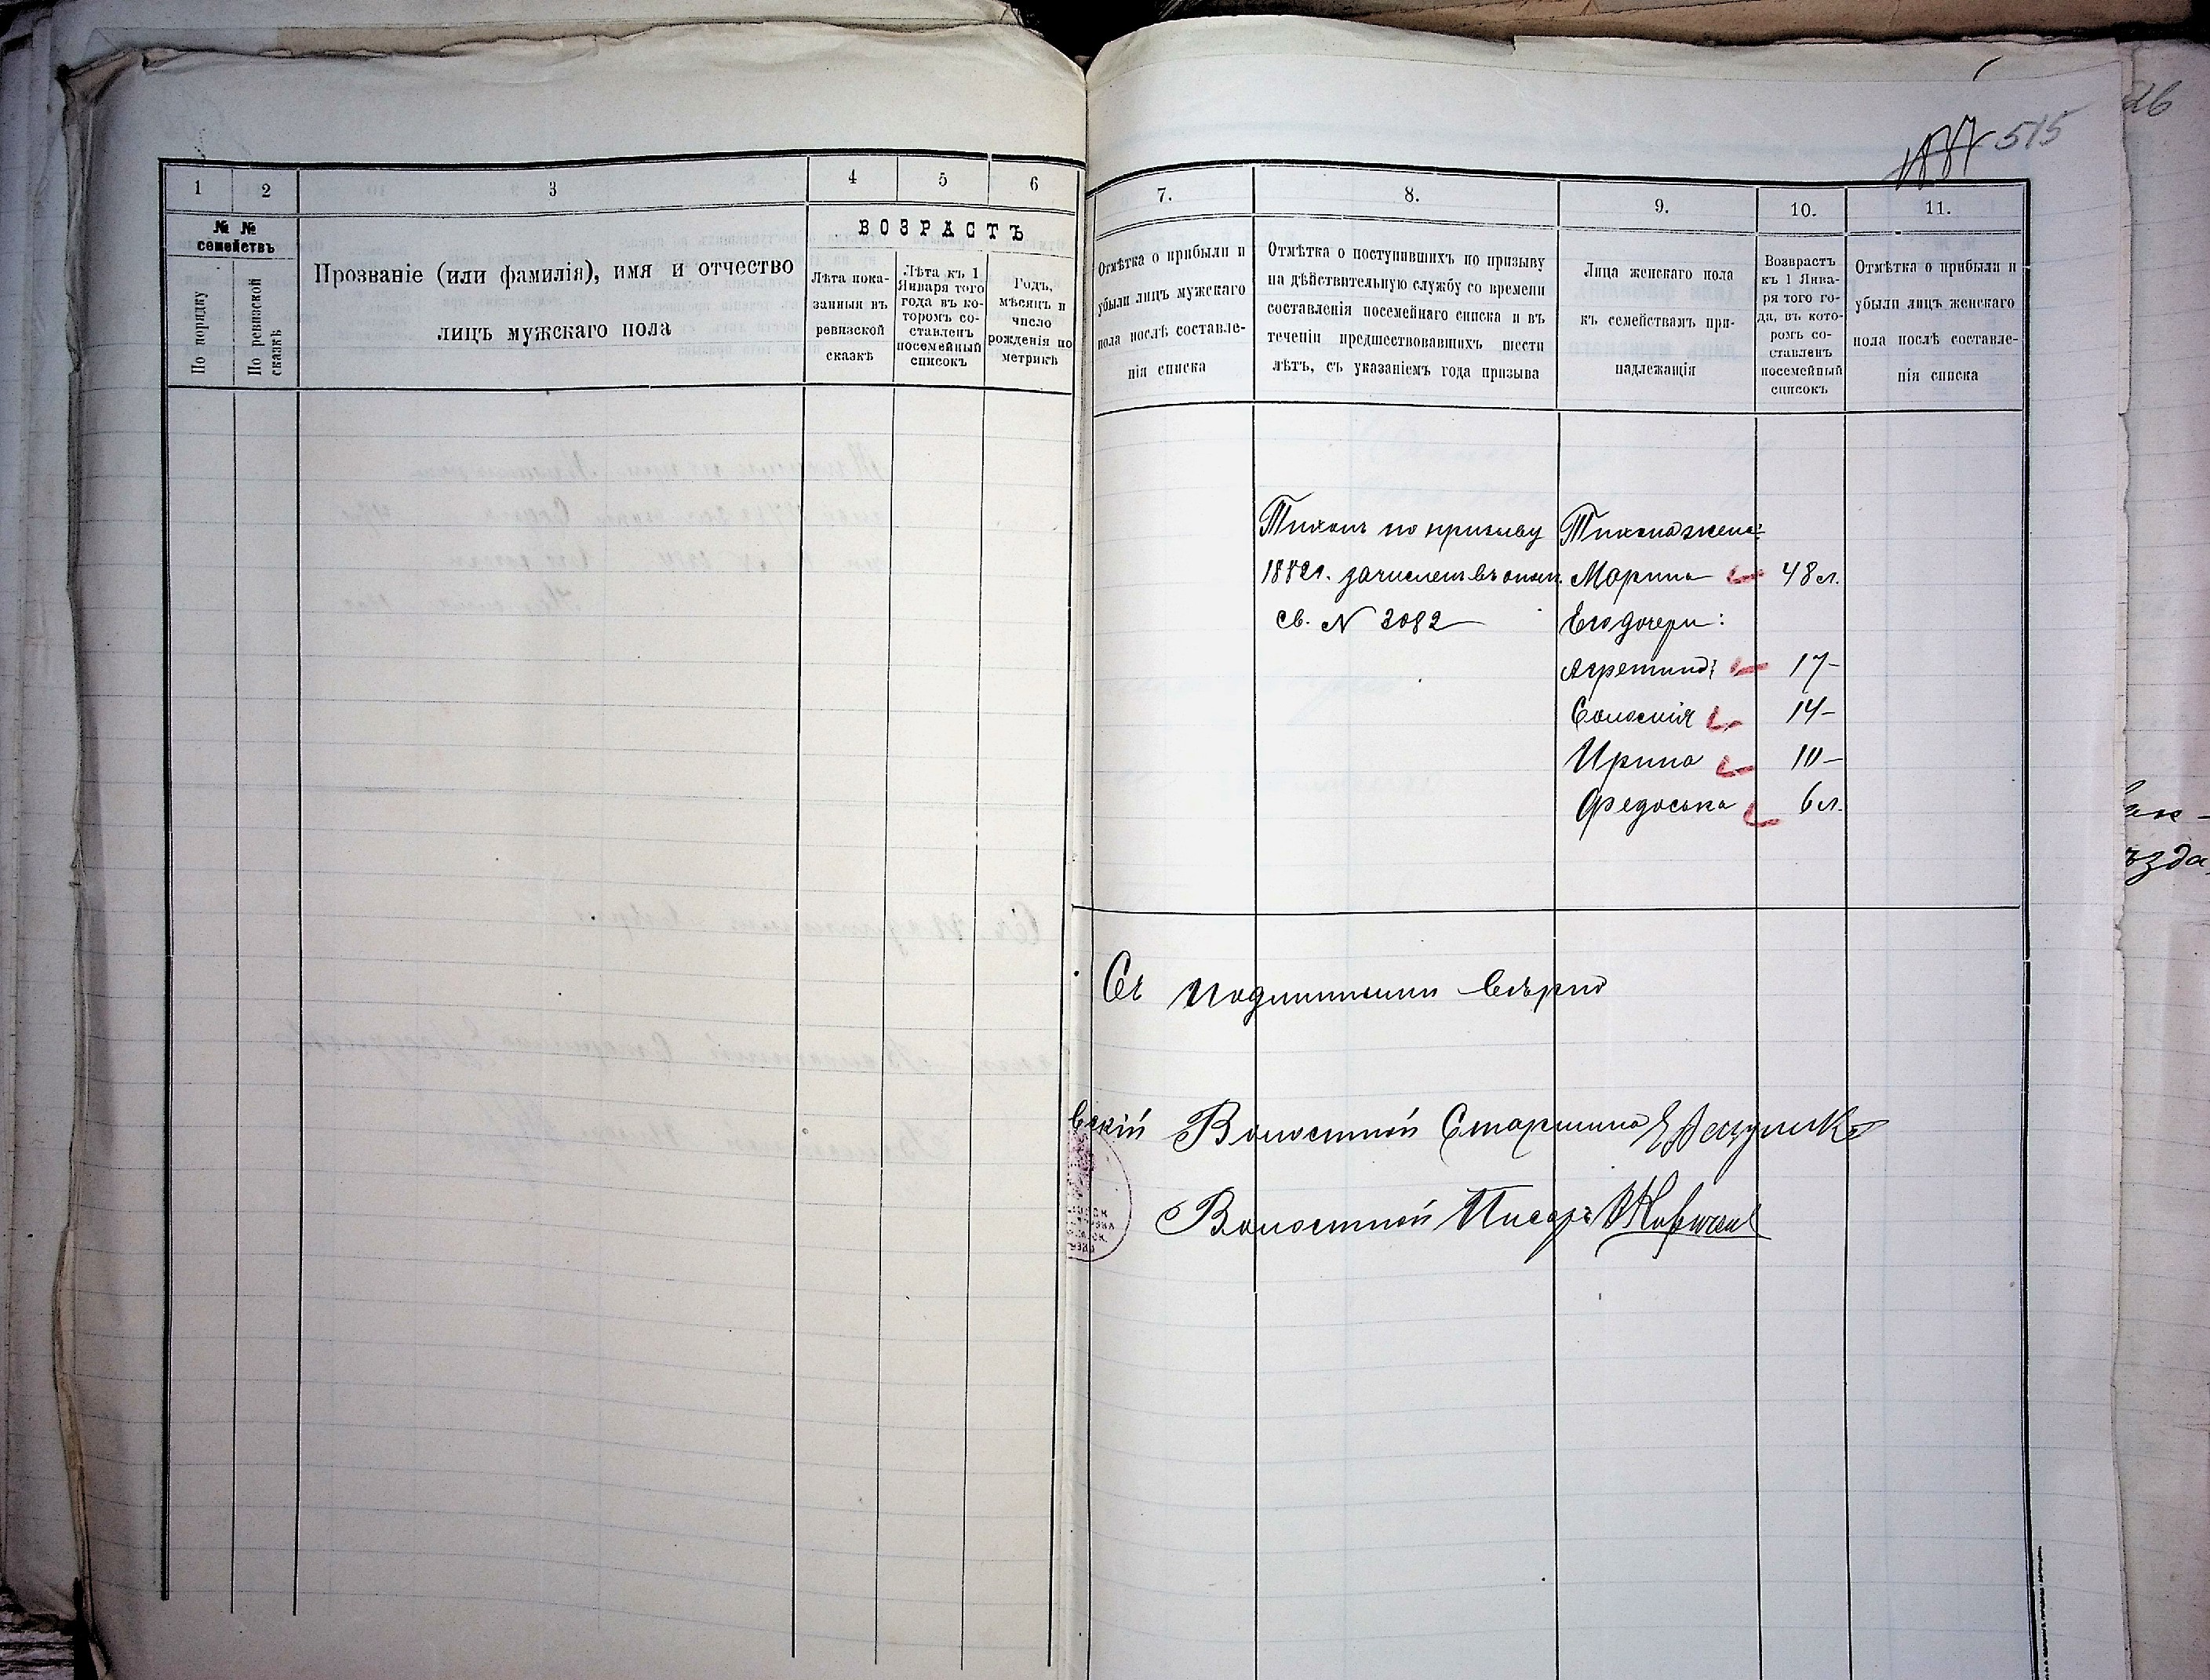 1
2
3
4
5
6
№ №
семействъ
По порядку
По ревизской
сказкѣ
Прозваніе (или фамилія), имя и отчество
лицъ мужскаго пола
ВОЗРАСТЪ
Лѣта пока-
занныя въ
ревизской
сказкѣ
Лѣта къ 1
Января того
года въ ко-
торомъ со-
ставленъ
посемейный
списокъ
Годъ,
мѣсяцъ и
число
рожденія по
метрикѣ
515
7.
8.
9.
10.
11.
Отмѣтка о прибыли и
убыли лицъ мужскаго
пола послѣ составле-
нія списка
Отмѣтка о поступившихъ по призыву
на дѣйствительную службу со времени
составленія посемейнаго списка и въ
теченіи предшествовавшихъ шести
лѣтъ, съ указаніемъ года призыва
Лица женскаго пола
къ семействамъ при-
надлежащія
Возврастъ
къ 1 Янва-
ря того го-
да, въ кото-
ромъ со-
ставленъ
посемейный
списокъ
Отмѣтка о прибыли и
убыли лицъ женскаго
пола послѣ составле-
нія списка
Тихонъ по призыву
1882г. зачисленъ въ ополч.
св. N 2082
Тихона жена:
Марина 48 л.
Его дочери:
17-
Соломнія 14-
Ирина 10-
Федоська 6 л.
Съ подлиннымъ вѣрно
вскій Волостной Старшина
Волостной Писарь
26
ѣзда,